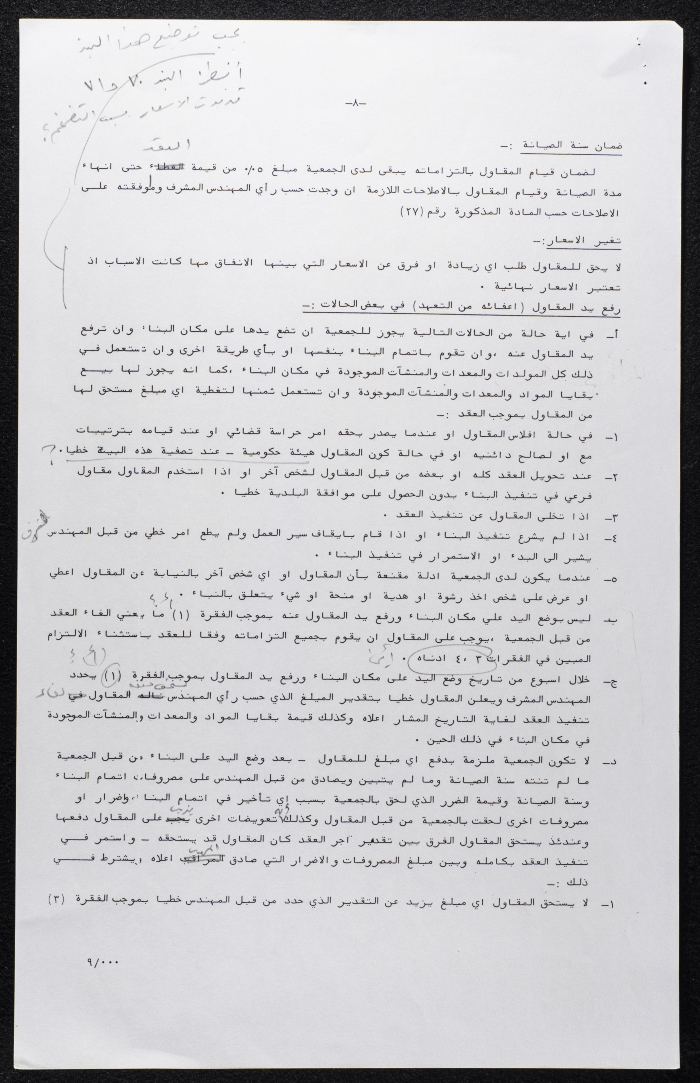 يجب توضيح هذا البند
أنظر البند ٧٠ و ٧١
الاسعار بسبب التضخم؟
-٨-
ضمان سنة الصيانة :-
العقد
لضمان قيام المقاول بالتزاماته يبقى لدى الجمعية مبلغ ٥٪ من قيمة العطاء حتى انهاء
مدة الصيانة وقيام المقاول بالاصلاحات اللازمة ان وجدت حسب رأي المهندس المشرف وموفقته على
الاصلاحات حسب المادة المذكورة رقم (٢٧)
تغير الاسعار:-
لا يحق للمقاول طلب اي زيادة او فرق عن الاسعار التي بينها الاتفاق مها كانت الاسباب اذ
تعتبر الاسعار نهائية .
رفع يد المقاول (اعفائه من التعهد) في بعض الحالات :-
أ- في اية حالة من الحالات التالية يجوز للجمعية ان تضع يدها على مكان البناء وان ترفع
يد المقاول عنه ،وان تقوم باتمام البناء بنفسها او بأي طريقة اخرى وان تستعمل في
ذلك كل المولدات والمعدات والمنشآت الموجودة في مكان البناء ،كما انه يجوز لها بيع
بقايا المواد والمعدات والمنشآت الموجودة وان تستعمل ثمنها لتغطية اي مبلغ مستحق لها
من المقاول بموجب العقد :-
١- في حالة افلاس المقاول او عندما يصدر بحقه امر حراسة قضائي او عند قيامه بترتيبات
مع او لصالح دائنيه او في حالة كون المقاول هيئة حكومية - عند تصفية هذه الهيئة خطيا . ؟
٢- عند تحويل العقد كله او بعضه من قبل المقاول لشخص آخر او اذا استخدم المقاول مقاول
فرعي في تنفيذ البناء بدون الحصول على موافقة البلدية خطيا .
٣- اذا تخلى المقاول عن تنفيذ العقد .
٤- اذا لم يشرع تنفيذ البناء او اذا قام بايقاف سير العمل ولم يطع امر خطي من قبل المهندس المشرف
يشير الى البدء او الاستمرار في تنفيذ البناء .
٥- عندما يكون لدى الجمعية ادلة مقنعة بأن المقاول او اي شخص آخر بالنيابة عن المقاول اعطي
او عرض على شخص اخذ رشوة او هدية او منحة او شيء يتعلق بالنباء .
ب- ليس بوضع اليد علي مكان البناء ورفع يد المقاول عنه بموجب الفقرة (١) ما يعني الغاء العقد
من قبل الجمعية ،يوجب على المقاول ان يقوم بجميع التزاماته وفقا للعقد باستثناء الالتزام
المبين في الفقرات ٣ ،٤ ادناه .
ج- خلال اسبوع من تاريخ وضع اليد على مكان البناء ورفع يد المقاول بموجب الفقرة (١) يحدد
المهندس المشرف ويعلن المقاول خطيا بتقدير المبلغ الذي حسب رأي المهندس ناله المقاول في
تنفيذ العقد لغاية التاريخ المشار اعلاه وكذلك قيمة بقايا المواد والمعدات والمنشآت الموجودة
في مكان البناء في ذلك الحين .
د- لا تكون الجمعية ملزمة بدفع اي مبلغ للمقاول - بعد وضع اليد على البناء من قبل الجمعية
ما لم تنته سنة الصيانة وما لم يتبين ويصادق من قبل المهندس على مصروفات اتمام البناء
وسنة الصيانة وقيمة الضرر الذي لحق بالجمعية بسبب إي تأخير في اتمام البناء واضرار او
مصروفات اخرى لحقت بالجمعية من قبل المقاول وكذلك تعويضات اخرى يجب على المقاول دفعها
وعندئذ يستحق المقاول الفرق بين تقدير اجر العقد كان المقاول قد يستحقه - واستمر في
تنفيذ العقد بكامله وبين مبلغ المصروفات والاضرار التي صادق المراقب اعلاه ،يشترط في
ذلك :-
١- لا يستحق المقاول اي مبلغ يزيد عن التقدير الذي حدد من قبل المهندس خطيا بموجب الفقرة (٣)
٩/٠٠٠